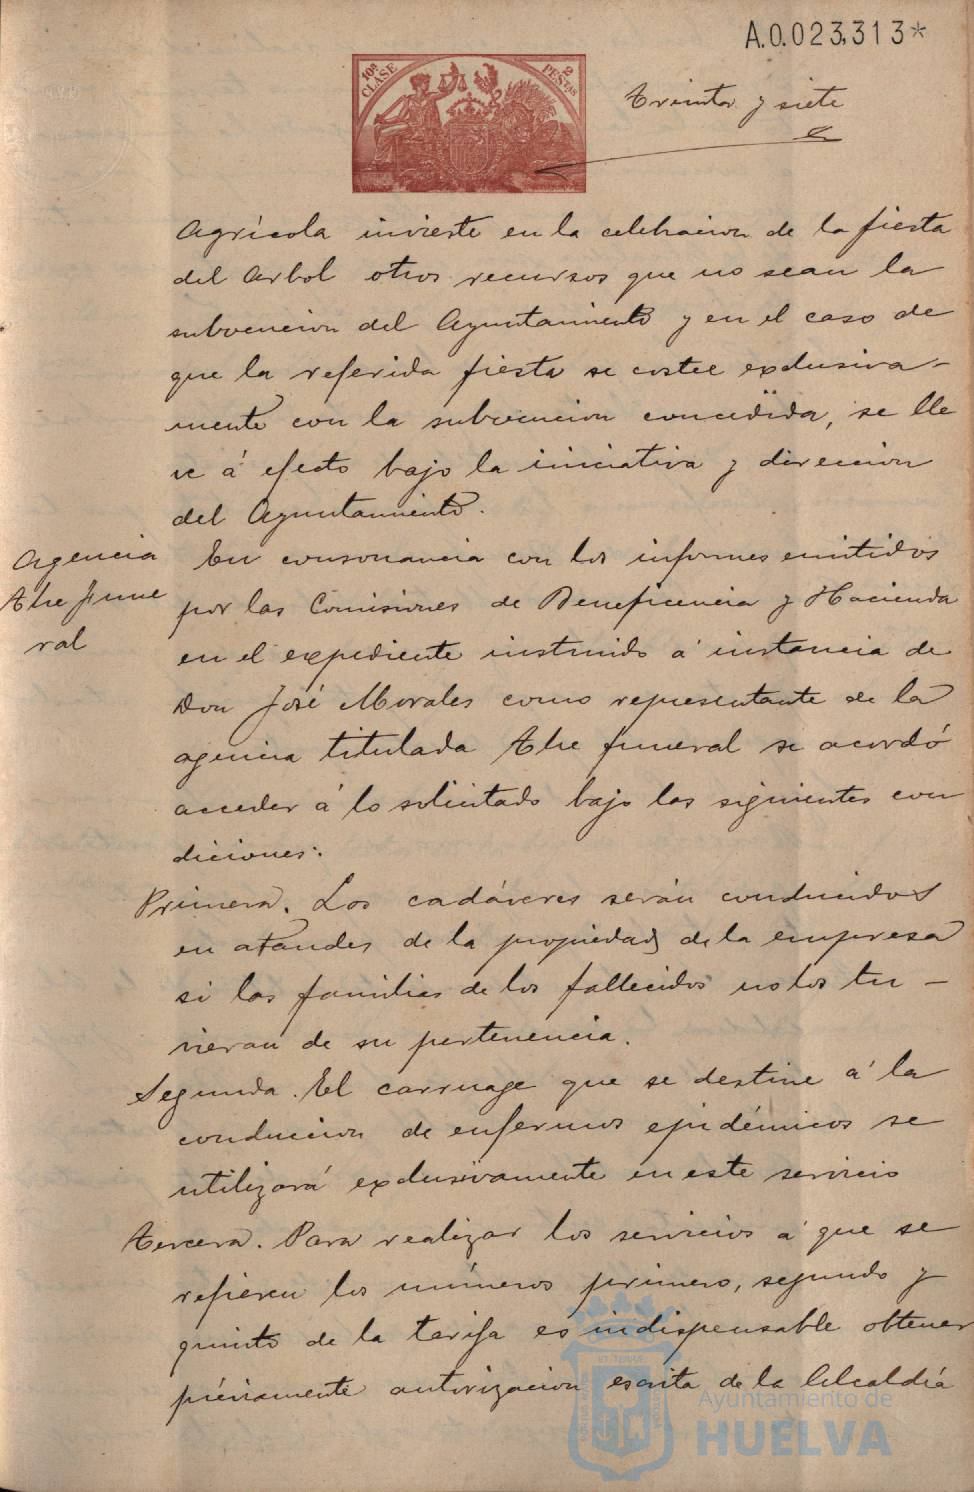 A.0.023,313*
10ª CLASE
2 PESTAS
Treinta y siete
Agrícola invierte en la celebracion de la fiesta
del Arbol otros recursos que no sean la
subvencion del Ayuntamiento y en el caso de
que la referida fiesta se costee exclusiva-
mente con la subvencion concedida, se lle
ve á efecto bajo la iniciativa y direccion
del Ayuntamiento.
Agencia
The fune
ral
En consonancia con los informes emitidos
por las Comisiones de Beneficencia y Hacienda
en el expediente instruido á instancia de
Don José Morales como representante de la
agencia titulada The funeral se acordó
acceder á lo solicitado bajo las siguientes con
diciones:
Primera. Los cadáveres serán conducidos
en ataudes de la propiedad de la empresa
si las familias de los fallecidos no los tu-
vieran de su pertenencia.
Segunda. El carruage que se destine á la
conduccion de enfermos epidémicos se
utilizará exclusivamente en este servicio
Tercera. Para realizar los servicios á que se
refieren los números primero, segundo y
quinto de la tarifa es indispensable obtener
préviamente autorizacion escrita de la Alcaldía
Ayuntamiento de
HUELVA